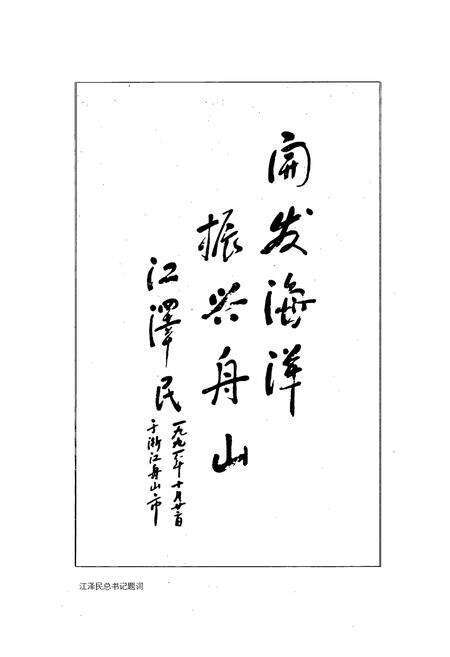 開发海洋
振兴舟山
江澤民
一九九一年十月廿二日
于浙江舟山市
江泽民总书记题词